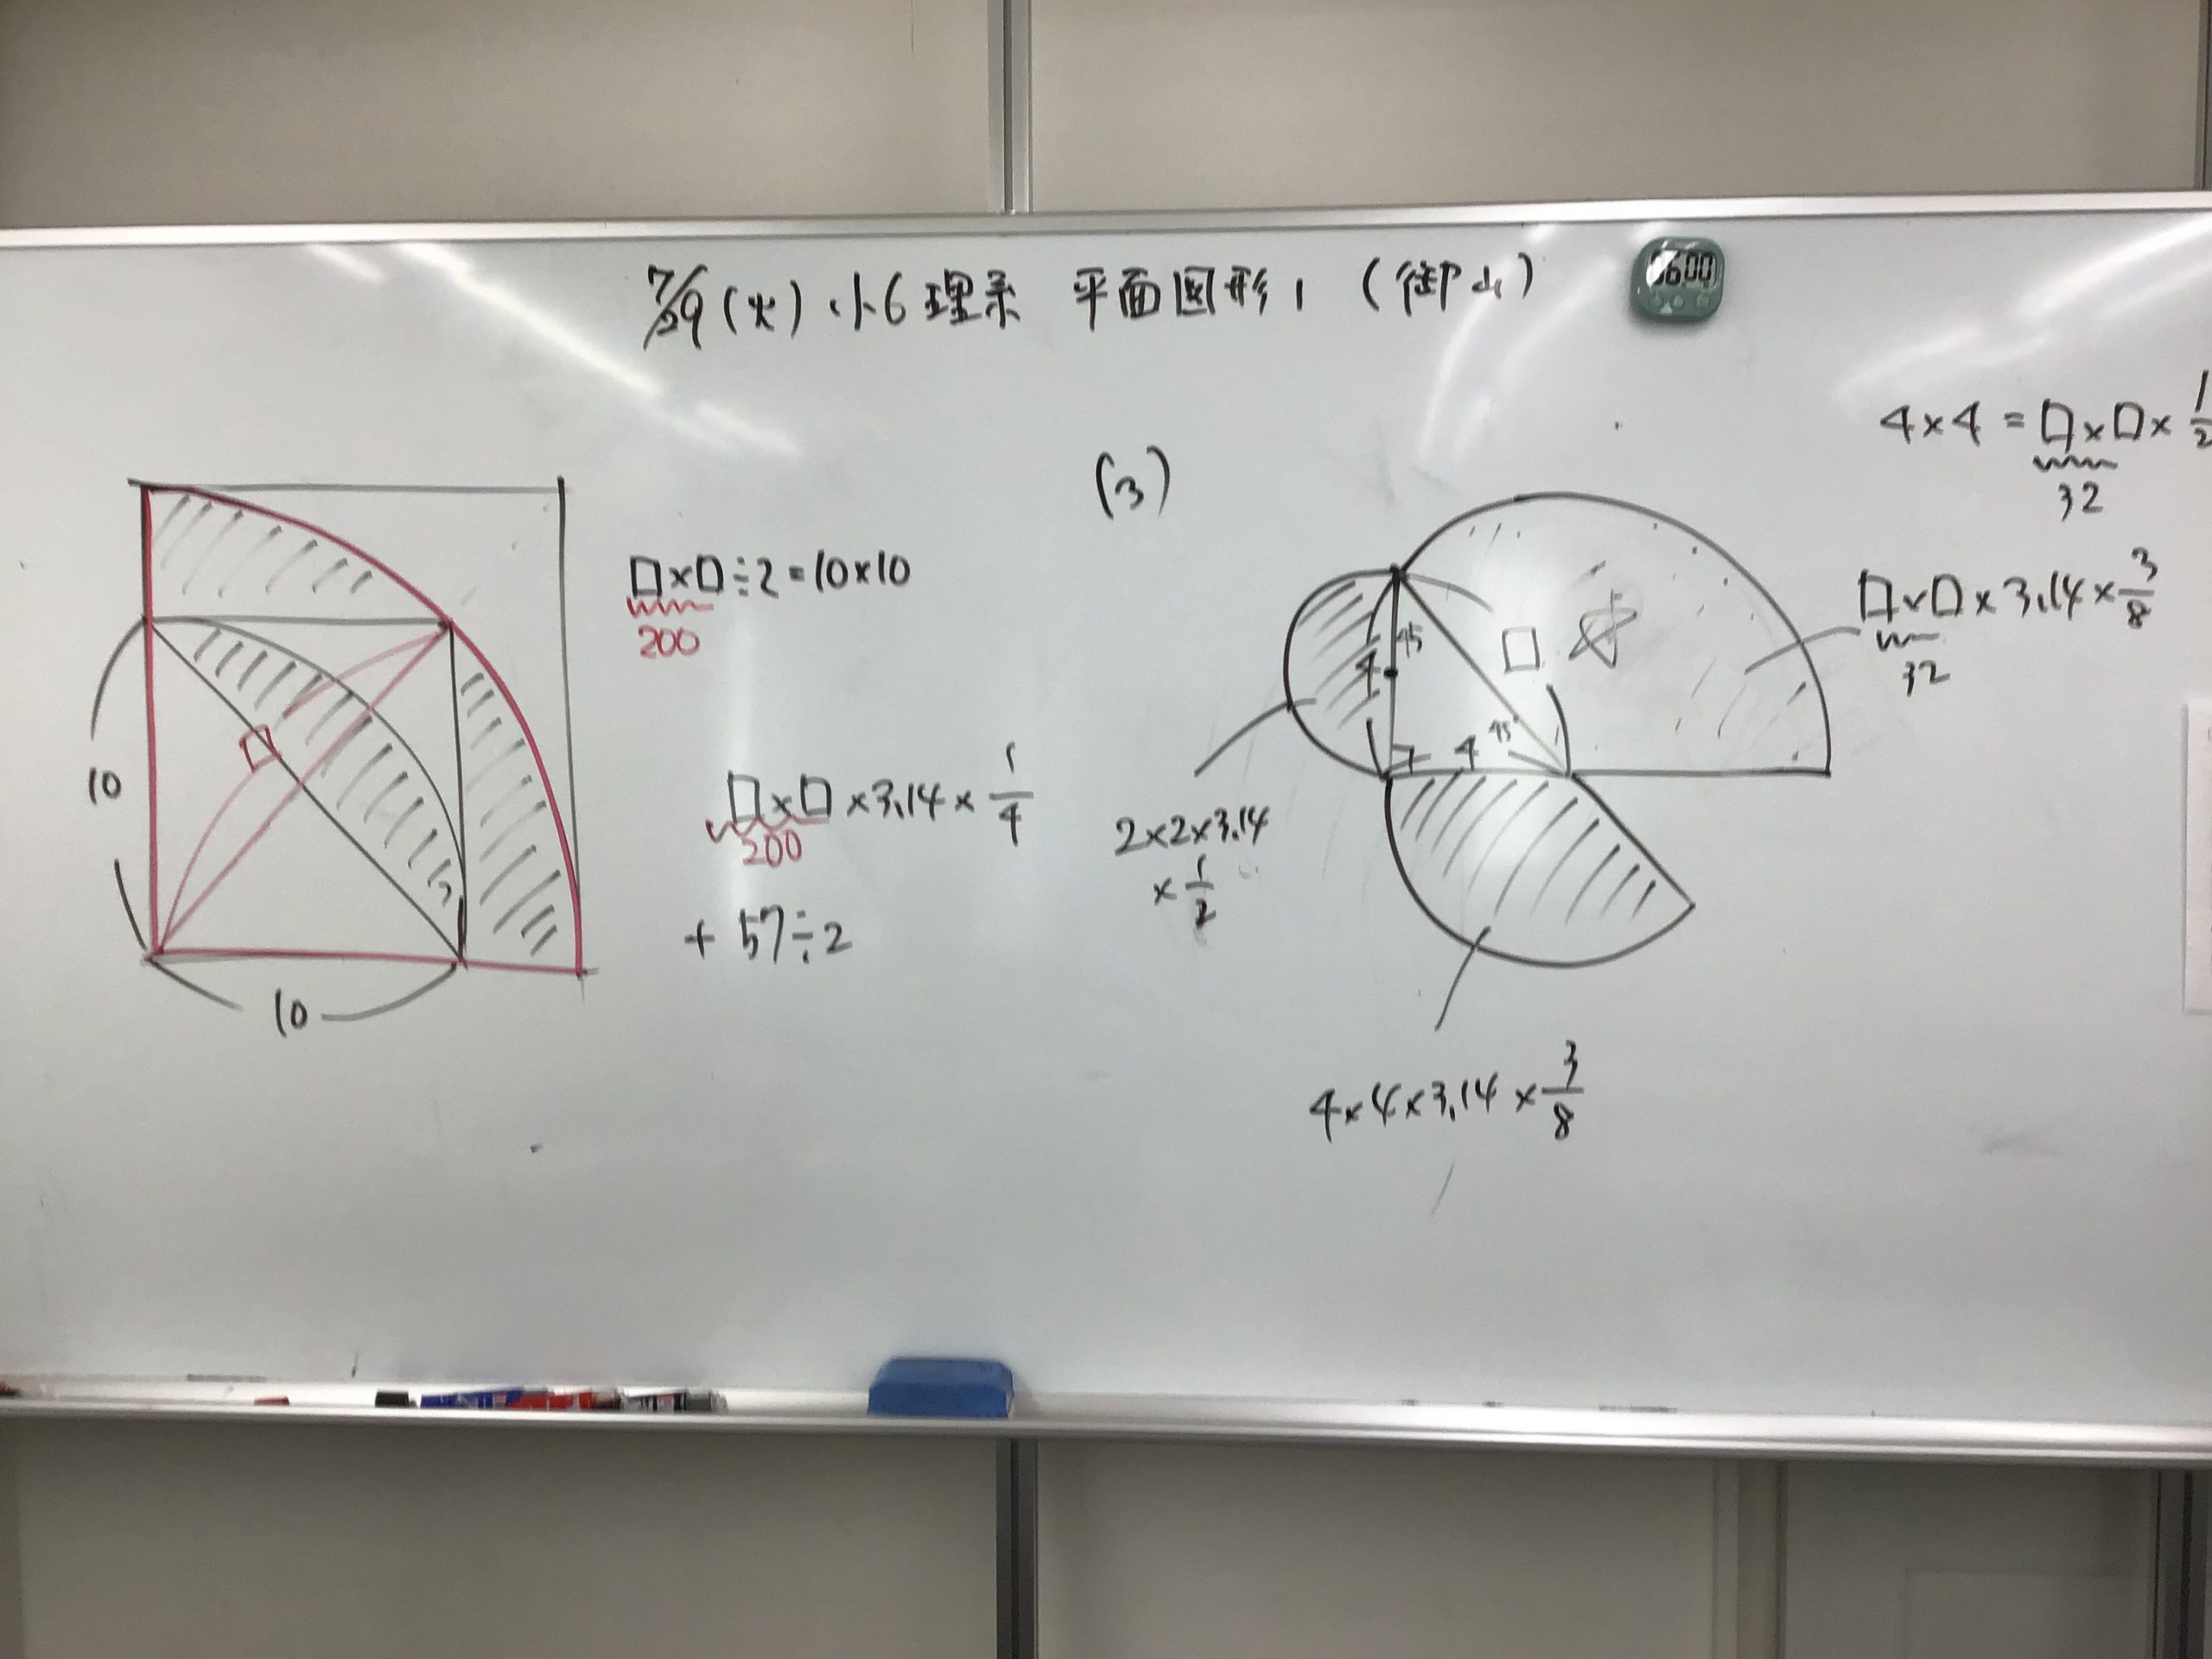 7/29(火) 小6理系 平面図形1 (御山)
□×□÷2=10×10
200
□×□×3.14×1/4
200
+ 57÷2
10
10
(3)
4×4=□×□×1/2
32
□×□×3.14×3/8
32
45
□
4
4
45°
2×2×3.14
×1/2
4×4×3.14×3/8